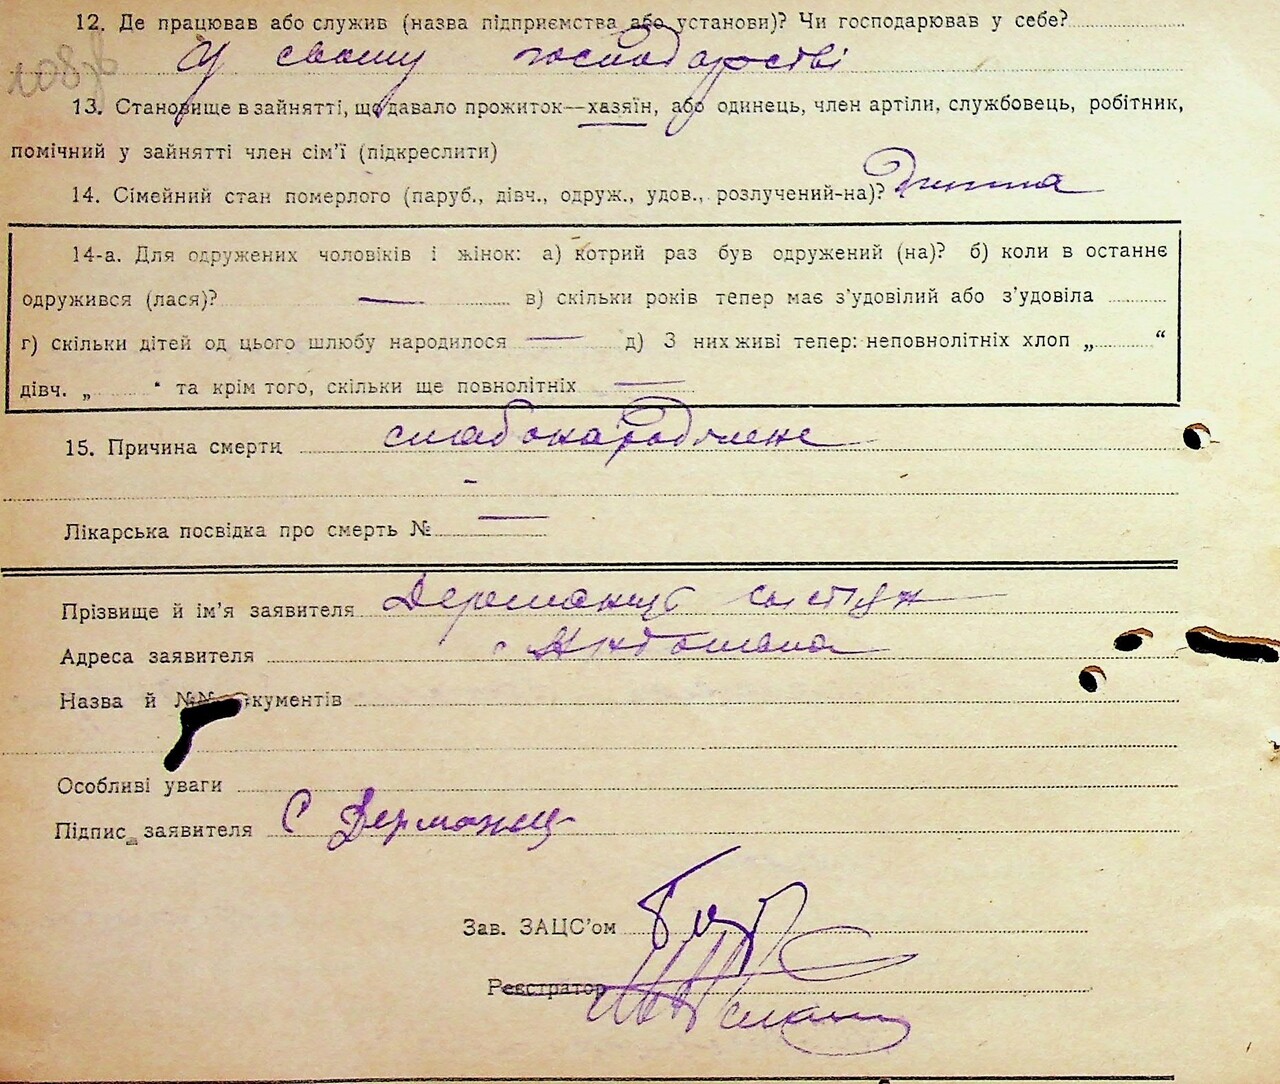 12. Де працював або служив (назва підприємства або установи)? Чи господарював у себе?
108
У своему господарстві
13. Становище в зайнятті, що давало прожиток—хазяїн, або одинець, член артіли, службовець, робітник,
помічний у зайнятті член сім’ї (підкреслити)
14. Сімейний стан померлого (паруб., дівч., одруж., удов., розлучений-на)? Дитина
14-а. Для одружених чоловіків і жінок: а) котрий раз був одружений (на)? б) коли в останнє
одружився (лася)? — в) скільки років тепер має з’удовілий або з’удовіла
г) скільки дітей од цього шлюбу народилося — д) З них живі тепер: неповнолітніх хлоп „ “
дівч. „ “ та крім того, скільки ще повнолітніх —
15. Причина смерти слабонароджене
Лікарська посвідка про смерть № —
Прізвище й ім’я заявителя Держанець
Адреса заявителя
Назва й №№ документів
Особливі уваги
Підпис заявителя С Держанец
Зав. ЗАЦС’ом
Реєстратор